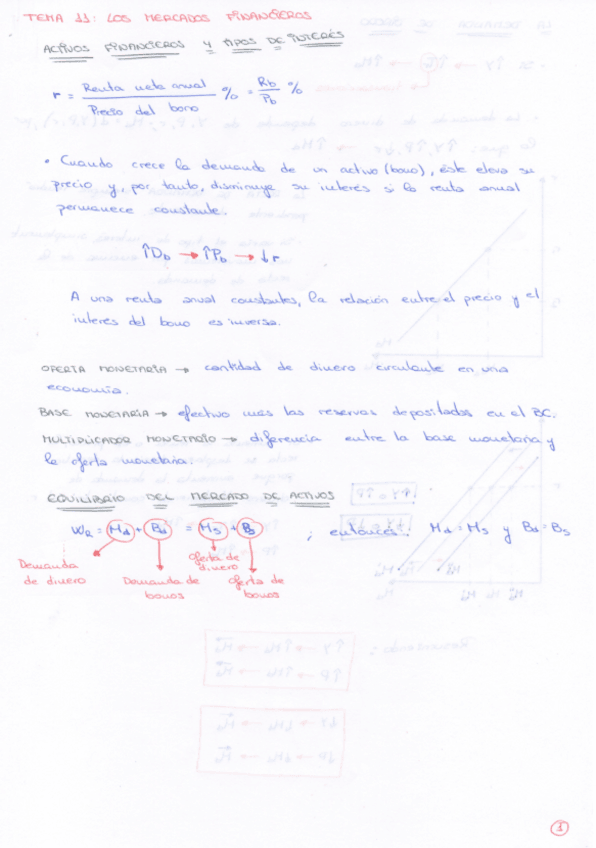 TEMA 11: LOS MERCADOS FINANCIEROS
ACTIVOS FINANCIEROS Y TIPOS DE INTERÉS
r = Renta neta anual / Precio del bono % = Rb / Pb %
• Cuando crece la demanda de un activo (bono), éste eleva su
precio y, por tanto, disminuye su interés si la renta anual
permanece constante.
↑Db → ↑Pb → ↓r
A una renta anual constantes, la relación entre el precio y el
interés del bono es inversa.
OFERTA MONETARIA → cantidad de dinero circulante en una
economía.
BASE MONETARIA → efectivo más las reservas depositadas en el BC.
MULTIPLICADOR MONETARIO → diferencia entre la base monetaria y
la oferta monetaria.
EQUILIBRIO DEL MERCADO DE ACTIVOS
WR = Md + Bd = Ms + Bs ; entonces: Md = Ms y Bd = Bs
Demanda de dinero
Demanda de bonos
Oferta de dinero
Oferta de bonos
1